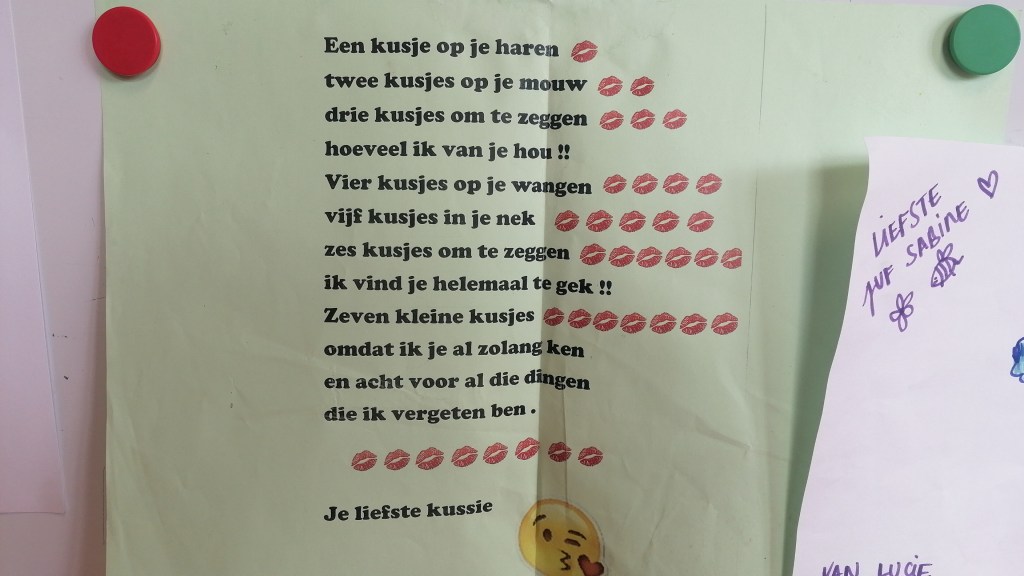 Een kusje op je haren
twee kusjes op je mouw
drie kusjes om te zeggen
hoeveel ik van je hou !!
Vier kusjes op je wangen
vijf kusjes in je nek
zes kusjes om te zeggen
ik vind je helemaal te gek !!
Zeven kleine kusjes
omdat ik je al zolang ken
en acht voor al die dingen
die ik vergeten ben .
Je liefste kussie
LIEFSTE
JUF SABINE
VAN LUCIE